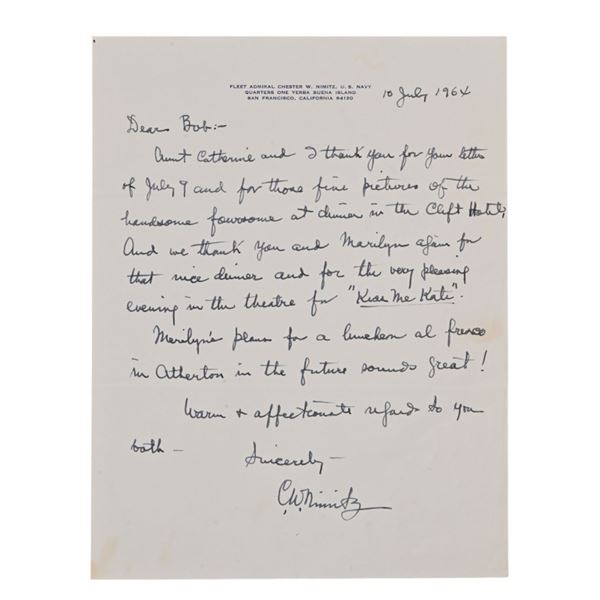 FLEET ADMIRAL CHESTER W. NIMITZ, U. S. NAVY
QUARTERS ONE YERBA BUENA ISLAND
SAN FRANCISCO, CALIFORNIA 94130
10 July 1964
Dear Bob:-
Aunt Catherine and I thank you for your letter
of July 9 and for those fine pictures of the
handsome foursome at dinner in the Clift Hotel;
And we thank you and Marilyn again for
that nice dinner and for the very pleasing
evening in the theatre for "Kiss Me Kate".
Marilyn's plans for a luncheon al fresco
in Atherton in the future sounds great!
Warm + affectionate regards to you
both -
Sincerely -
C.W. Nimitz